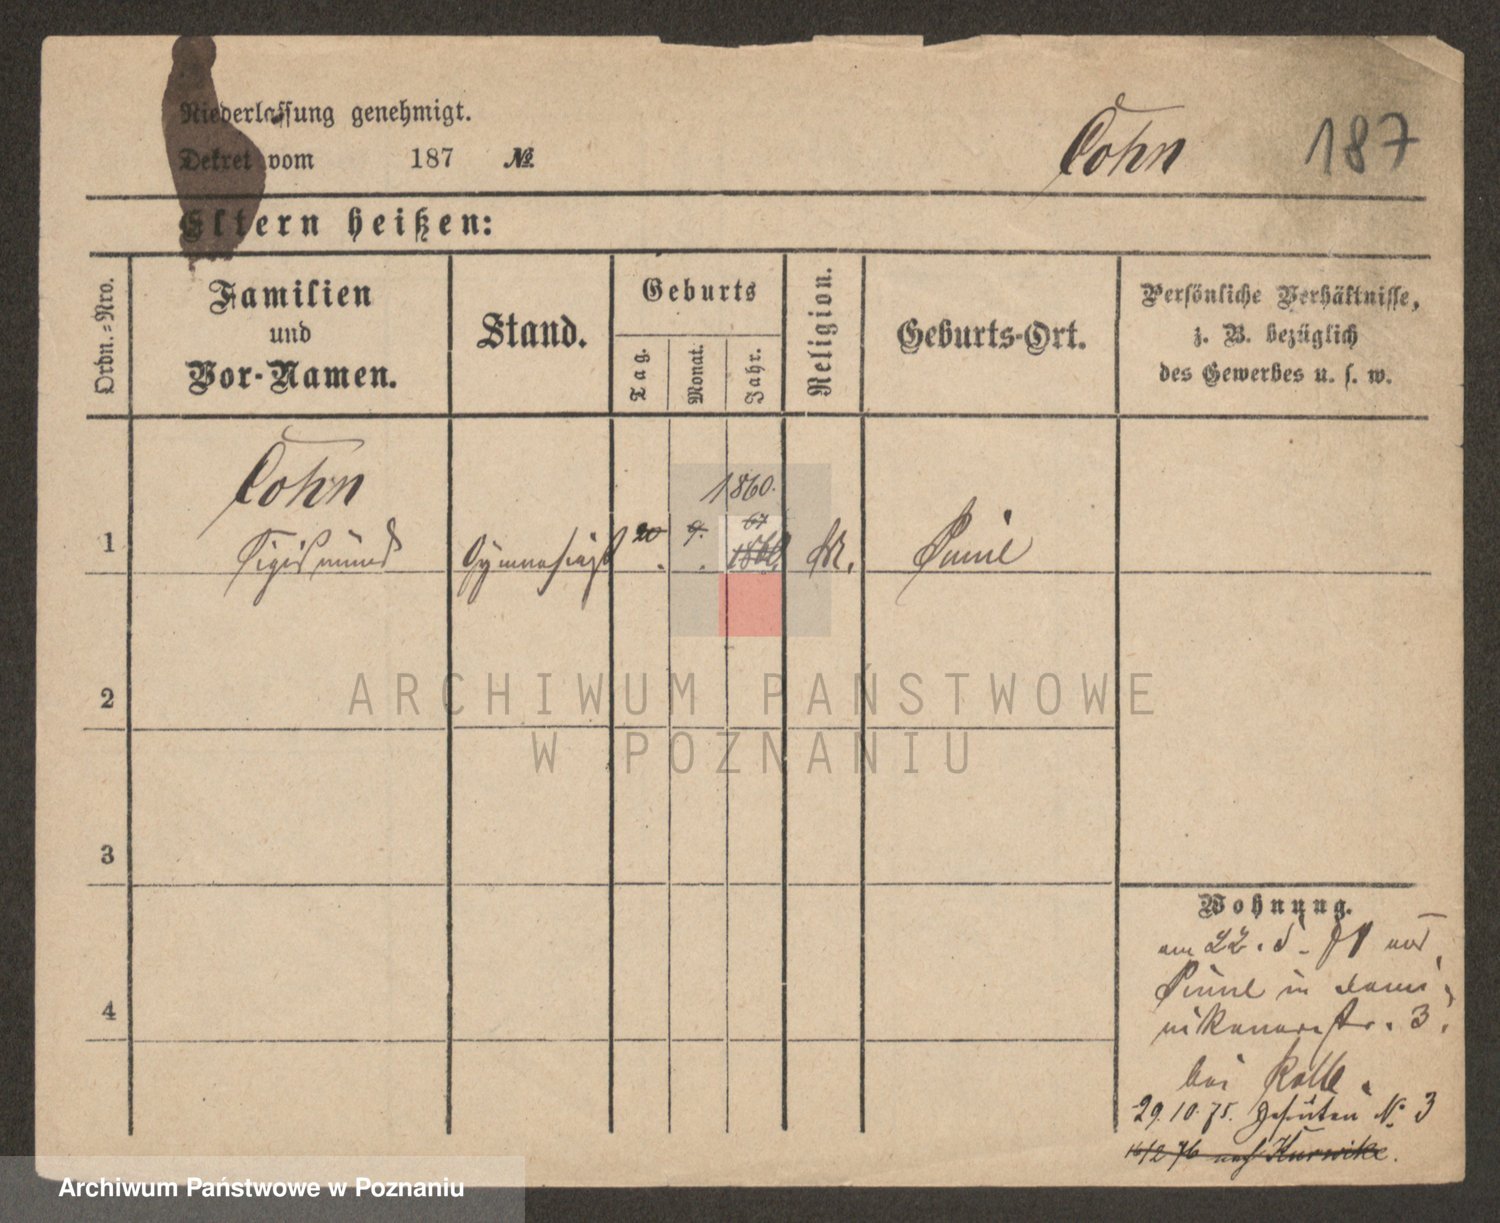 Niederlassung genehmigt.
Dekret vom 187 №
Cohn 187
Eltern heißen:
Ordn.=Nro.
Familien
und
Vor-Namen.
Stand.
Geburts
Tag.
Monat.
Jahr.
Religion.
Geburts-Ort.
Persönliche Verhältnisse,
z. B. bezüglich
des Gewerbes u. s. w.
1
Cohn
Sigismund
Gymnasiast
20
9.
1860.
67
Pinne
2
3
4
Wohnung.
am 22. 5. 71 aus
Pinne in Domi
nikanerstr. 3.
bei
29.10.75. № 3
nach Kurnik
ARCHIWUM PAŃSTWOWE
W POZNANIU
Archiwum Państwowe w Poznaniu